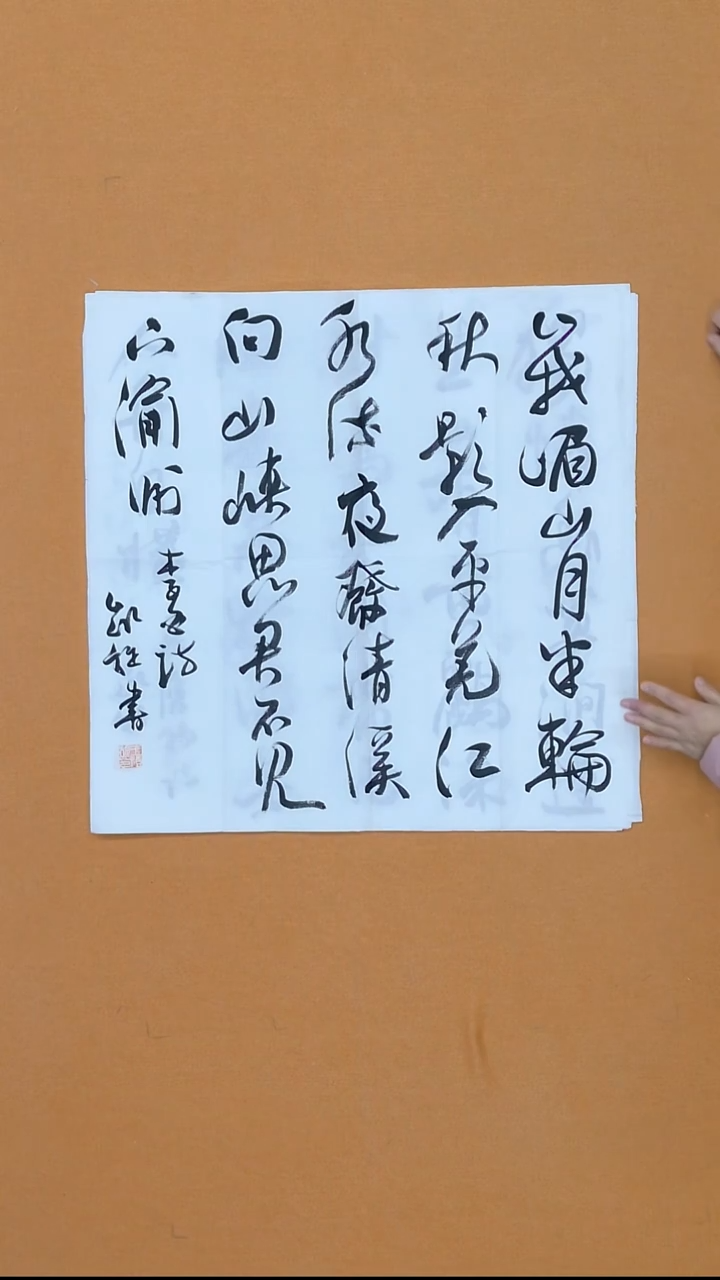 峩嵋山月半輪
秋影入平羌江
水流夜發清溪
向山峽思君不見
下渝州
李白詩
書